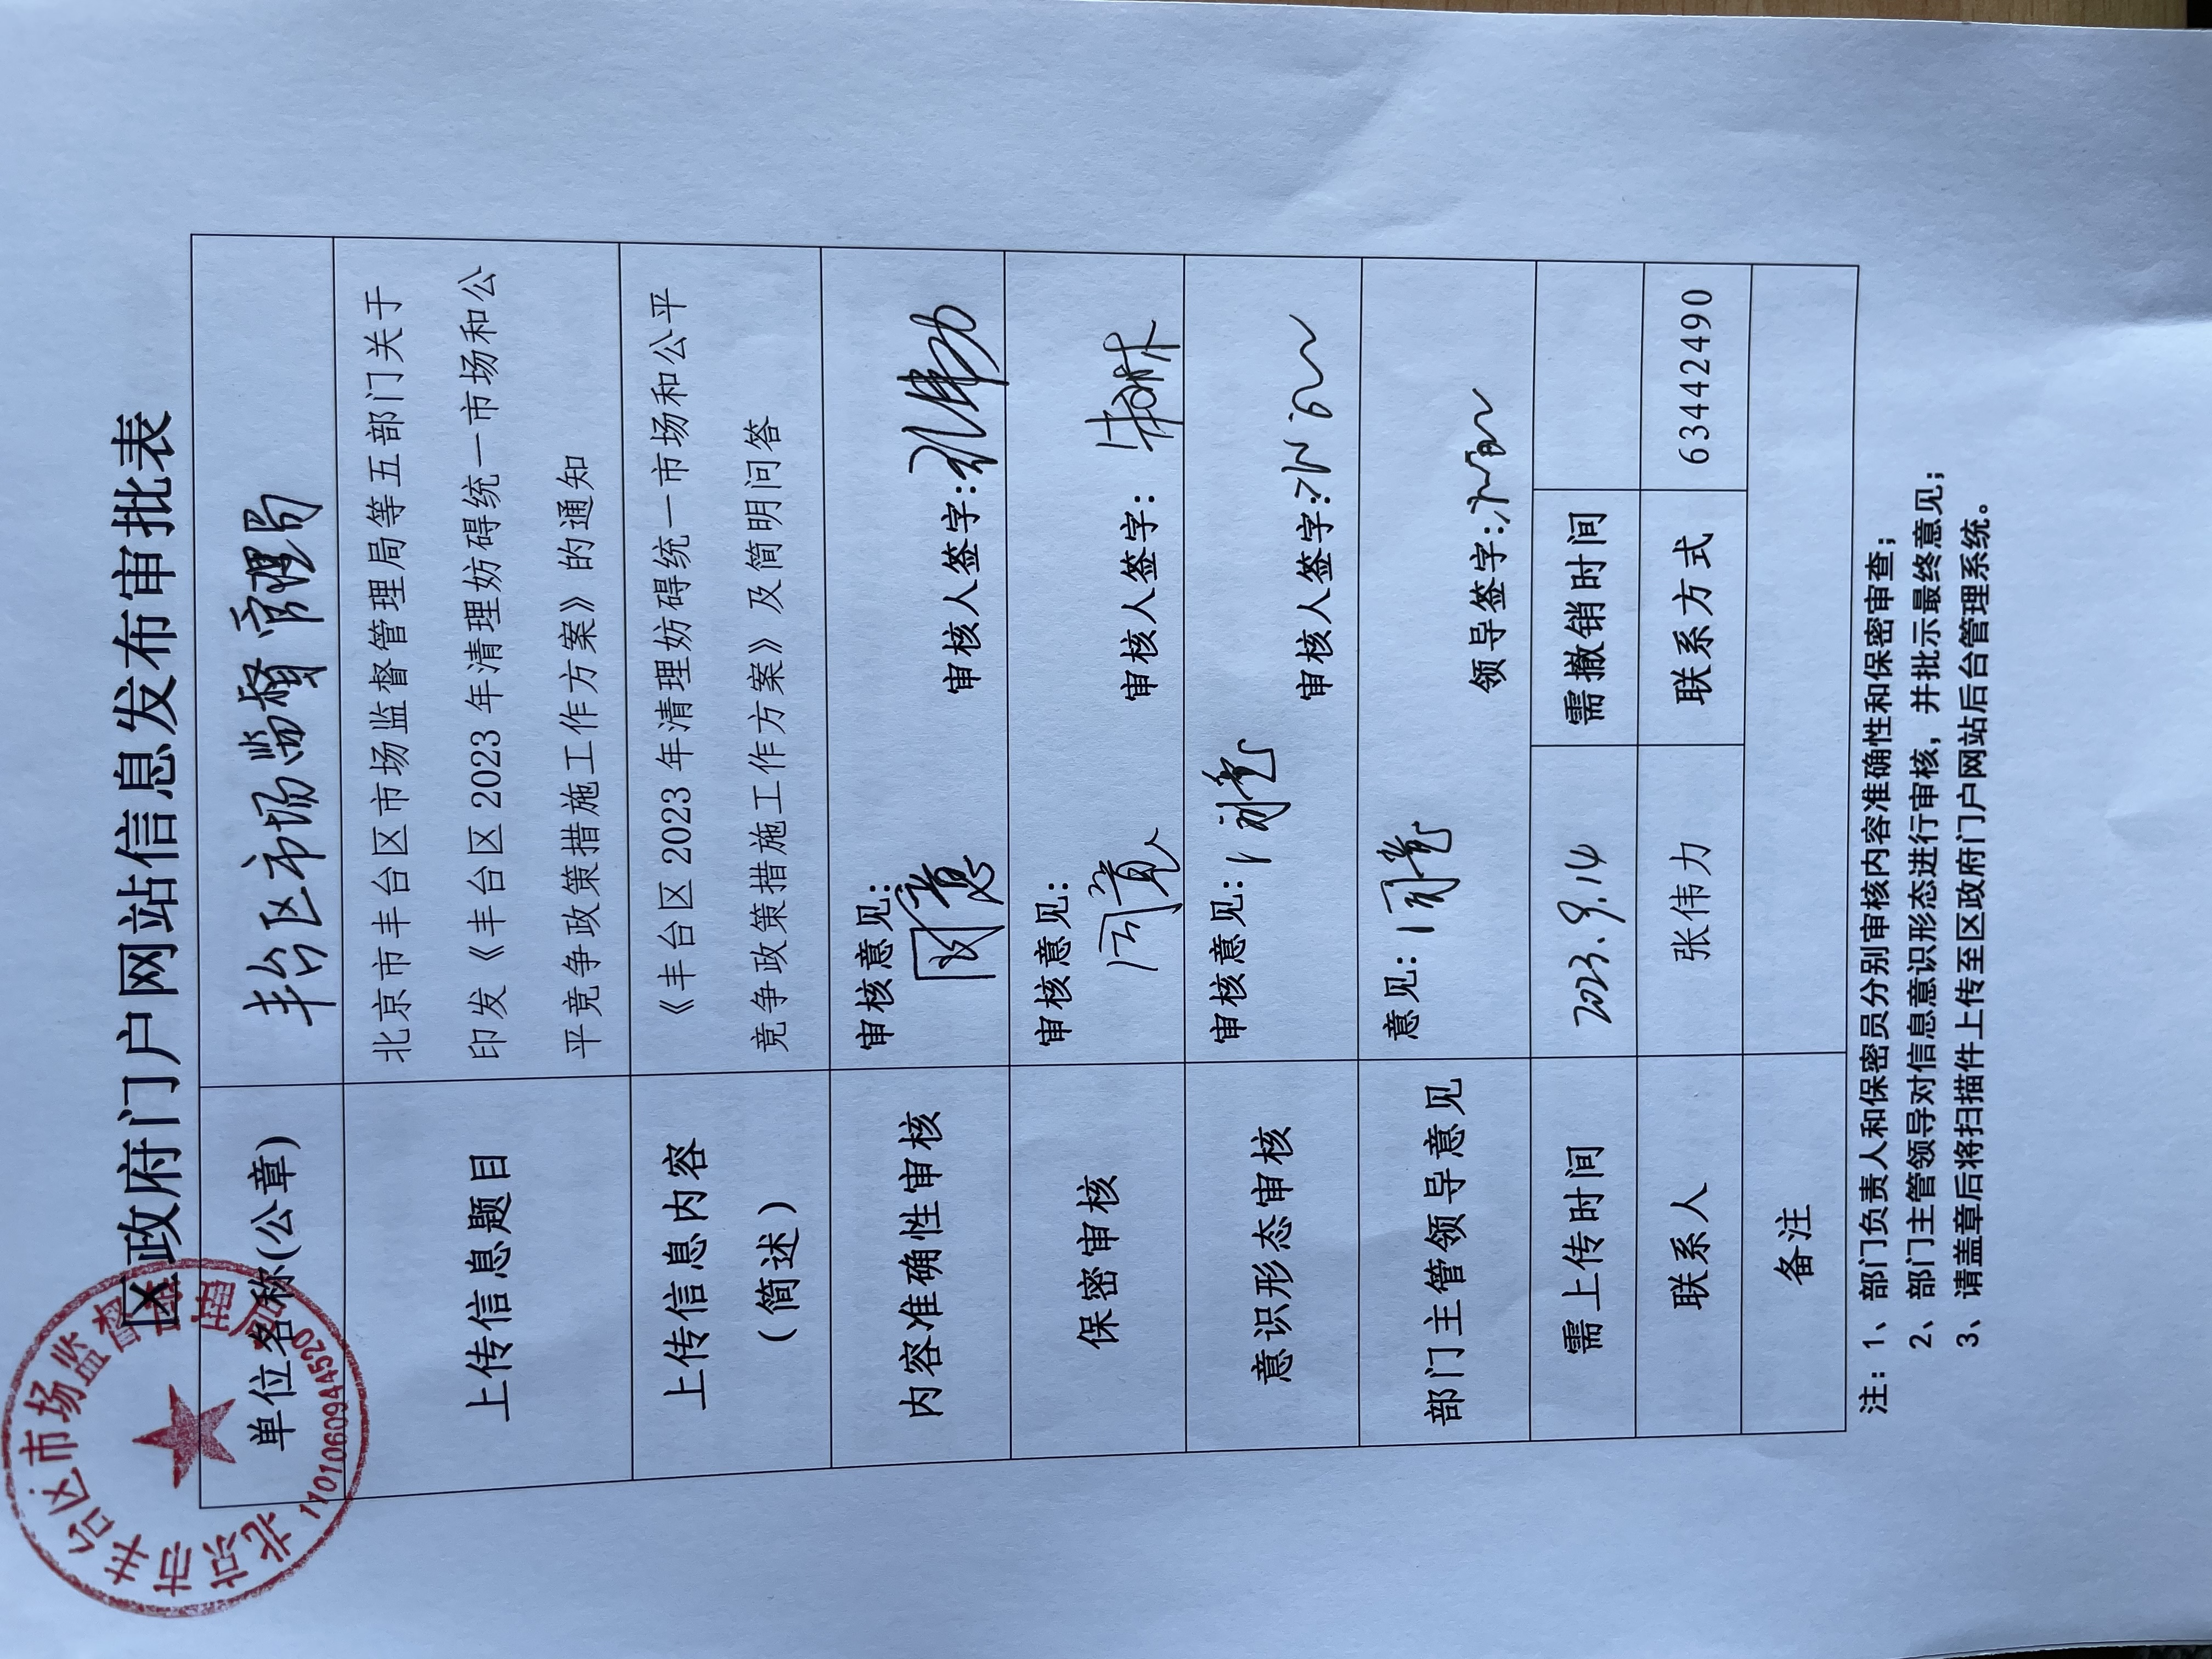 区政府门户网站信息发布审批表
单位名称(公章) 丰台区市场监督管理局
上传信息题目 北京市丰台区市场监督管理局等五部门关于
印发《丰台区 2023 年清理妨碍统一市场和公
平竞争政策措施工作方案》的通知
上传信息内容
(简述) 《丰台区 2023 年清理妨碍统一市场和公平
竞争政策措施工作方案》及简明问答
内容准确性审核 审核意见: 同意
审核人签字: 张伟力
保密审核 审核意见: 同意
审核人签字:
意识形态审核 审核意见: 同意
审核人签字:
部门主管领导意见 意见: 同意
领导签字:
需上传时间 2023.9.14 需撤销时间
联系人 张伟力 联系方式 63442490
备注
注: 1、部门负责人和保密员分别审核内容准确性和保密审查;
2、部门主管领导对信息意识形态进行审核,并批示最终意见;
3、请盖章后将扫描件上传至区政府门户网站后台管理系统。
北京市丰台区市场监督管理局
1101060944520